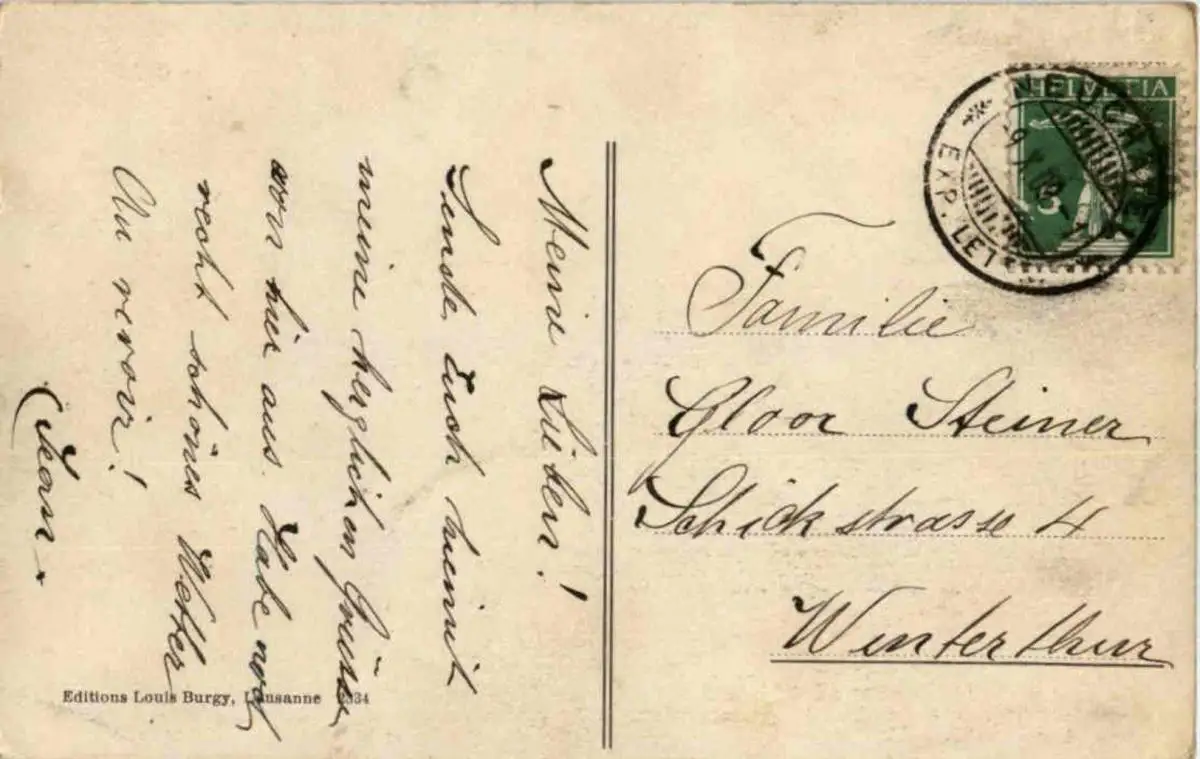 Meine Lieben!
Sende Euch hiemit
meine herzlichen Grüsse
von hier aus. Habe noch
recht schönes Wetter
Au revoir!
Jean
Familie
Gloor Steiner
Schickstrasse 4
Winterthur
HELVETIA
NEUCHATEL
EXP. LET
Editions Louis Burgy, Lausanne